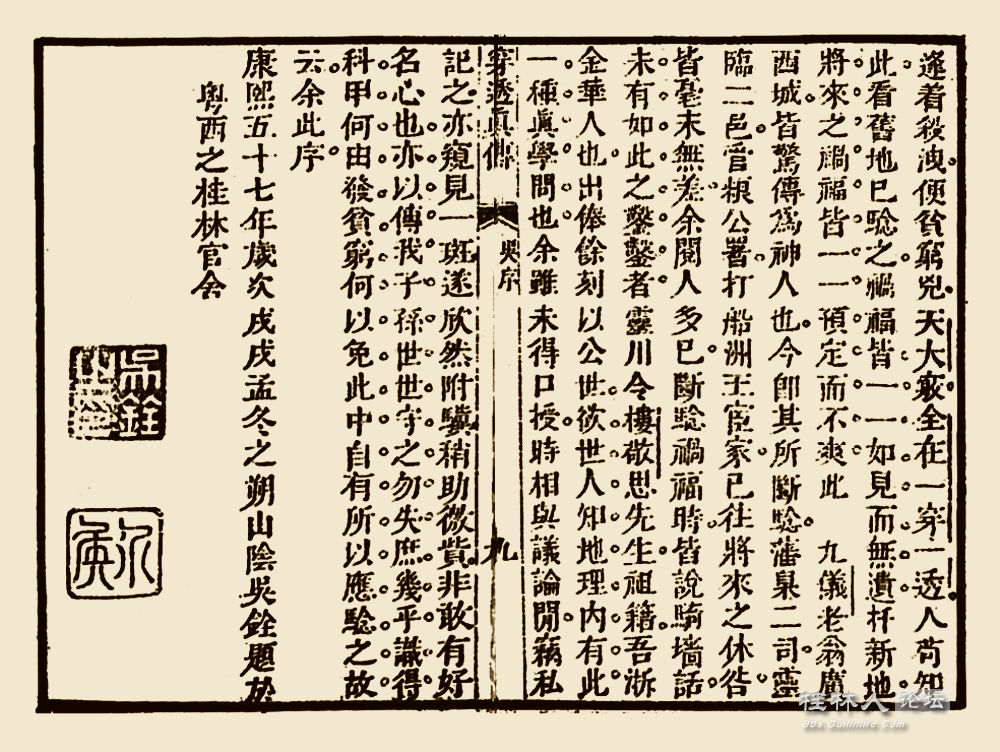 逢着殺洩便貧窮兇天大竅全在一穿一透人苟知
此看舊地已騐之禍福皆一一如見而無遺杆新地
將來之禍福皆一一預定而不爽此 九儀老翁廣
西城皆驚傳爲神人也今卽其所斷騐藩臬二司靈
臨二邑官根公署打船洲王宦家已往將來之休咎
皆毫末無差余閱人多已斷騐禍福時皆說騎墻話
未有如此之鑿鑿者靈川令樓敬思先生祖籍吾浙
金華人也出俸餘刻以公世欲世人知地理内有此
一種眞學問也余雖未得口授時相與議論閒竊私
穿透眞傳 吳序 九
記之亦窺見一斑遂欣然附驥稍助微貲非敢有好
名心也亦以傳我子孫世世守之勿失庶幾乎識得
科甲何由發貧窮何以免此中自有所以應騐之故
云余此序
康熙五十七年歲次戊戌孟冬之朔山陰吳銓題於
粤西之桂林官舍
吳銓
桂林人论坛
bbs.Guilinlife.com